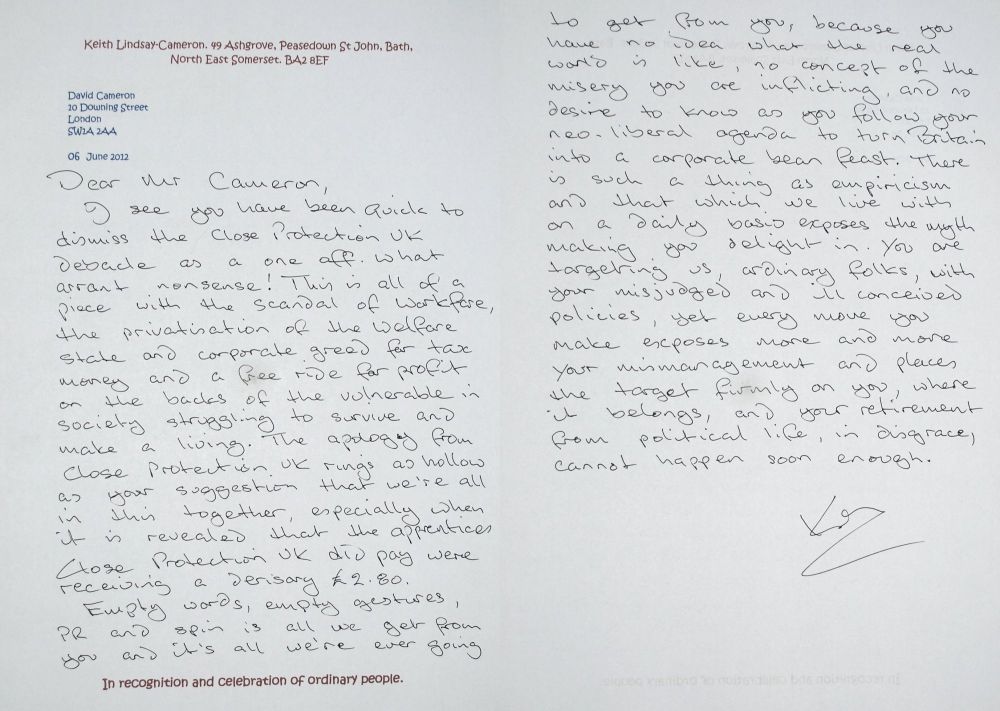 Keith Lindsay-Cameron. 49 Ashgrove, Peasedown St John, Bath,
North East Somerset. BA2 8EF
David Cameron
10 Downing Street
London
SW1A 2AA
06 June 2012
Dear Mr Cameron,
I see you have been quick to
dismiss the Close Protection UK
debacle as a one off. What
arrant nonsense! This is all of a
piece with the scandal of Workfare,
the privatisation of the welfare
state and corporate greed for tax
money and a free ride for profit
on the backs of the vulnerable in
society struggling to survive and
make a living. The apology from
Close Protection UK rings as hollow
as your suggestion that we're all
in this together, especially when
it is revealed that the apprentices
Close Protection UK did pay were
receiving a derisary £2.80.
Empty words, empty gestures,
PR and spin is all we get from
you and it's all we're ever going
In recognition and celebration of ordinary people.
to get from you, because you
have no idea what the real
world is like, no concept of the
misery you are inflicting, and no
desire to know as you follow your
neo-liberal agenda to turn Britain
into a corporate bean feast. There
is such a thing as empiricism
and that which we live with
on a daily basis exposes the myth
making you delight in. You are
targetring us, ordinary folks, with
your misjudged and ill conceived
policies, yet every move you
make exposes more and more
your mismanagement and places
the target firmly on you, where
it belongs, and your retirement
from political life, in disgrace,
cannot happen soon enough.